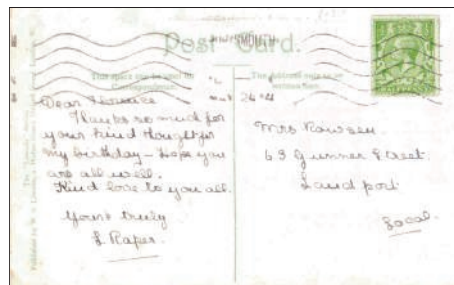 PORTSMOUTH
Post Card.
This space can be used for
Correspondence.
The Address only to be
written here.
Dear Florence
Thanks so much for
your kind thought for
my birthday - hope you
are all well.
Kind love to you all.
Yours truly
L. Raper.
Mrs Rowsell
63 Gunner Street.
Landport
Local.